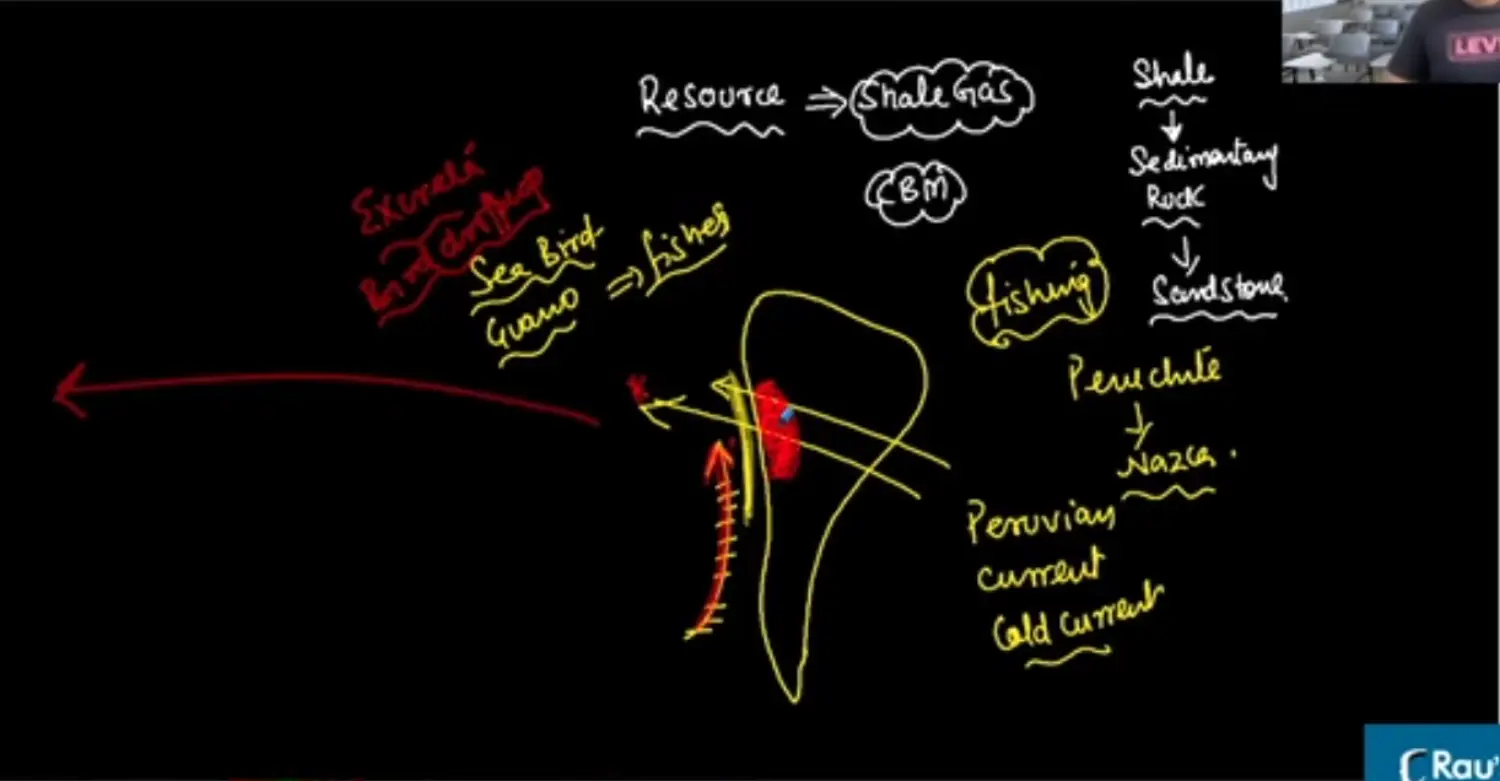 LEV
Resource ⇒ Shale Gas
CBM
Shale
↓
Sedimentary
Rock
↓
Sandstone
Excreta
Bird dropping
Sea Bird
Guano ⇒ fishes
fishing
↓
Nazca
Peruvian
current
Cold current
Rau'